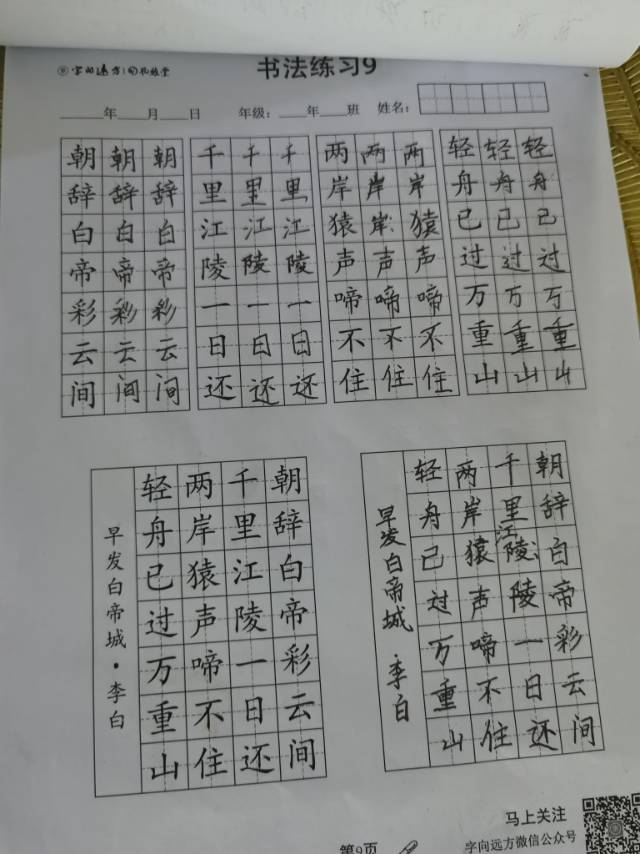 字向远方
书法练习9
____年____月____日 年级：____年____班 姓名：
朝辞白帝彩云间
朝辞白帝彩云间
朝辞白帝彩云间
千里江陵一日还
千里江陵一日还
千里江陵一日还
两岸猿声啼不住
两岸岸声啼不住
两岸猿声啼不住
轻舟已过万重山
轻舟已过万重山
轻舟已过万重山
早发白帝城·李白
朝辞白帝彩云间
千里江陵一日还
两岸猿声啼不住
轻舟已过万重山
早发白帝城 李白
朝辞白帝彩云间
千里江陵陵一日还
两岸猿声啼不住
轻舟已过万重山
第9页
马上关注
字向远方微信公众号